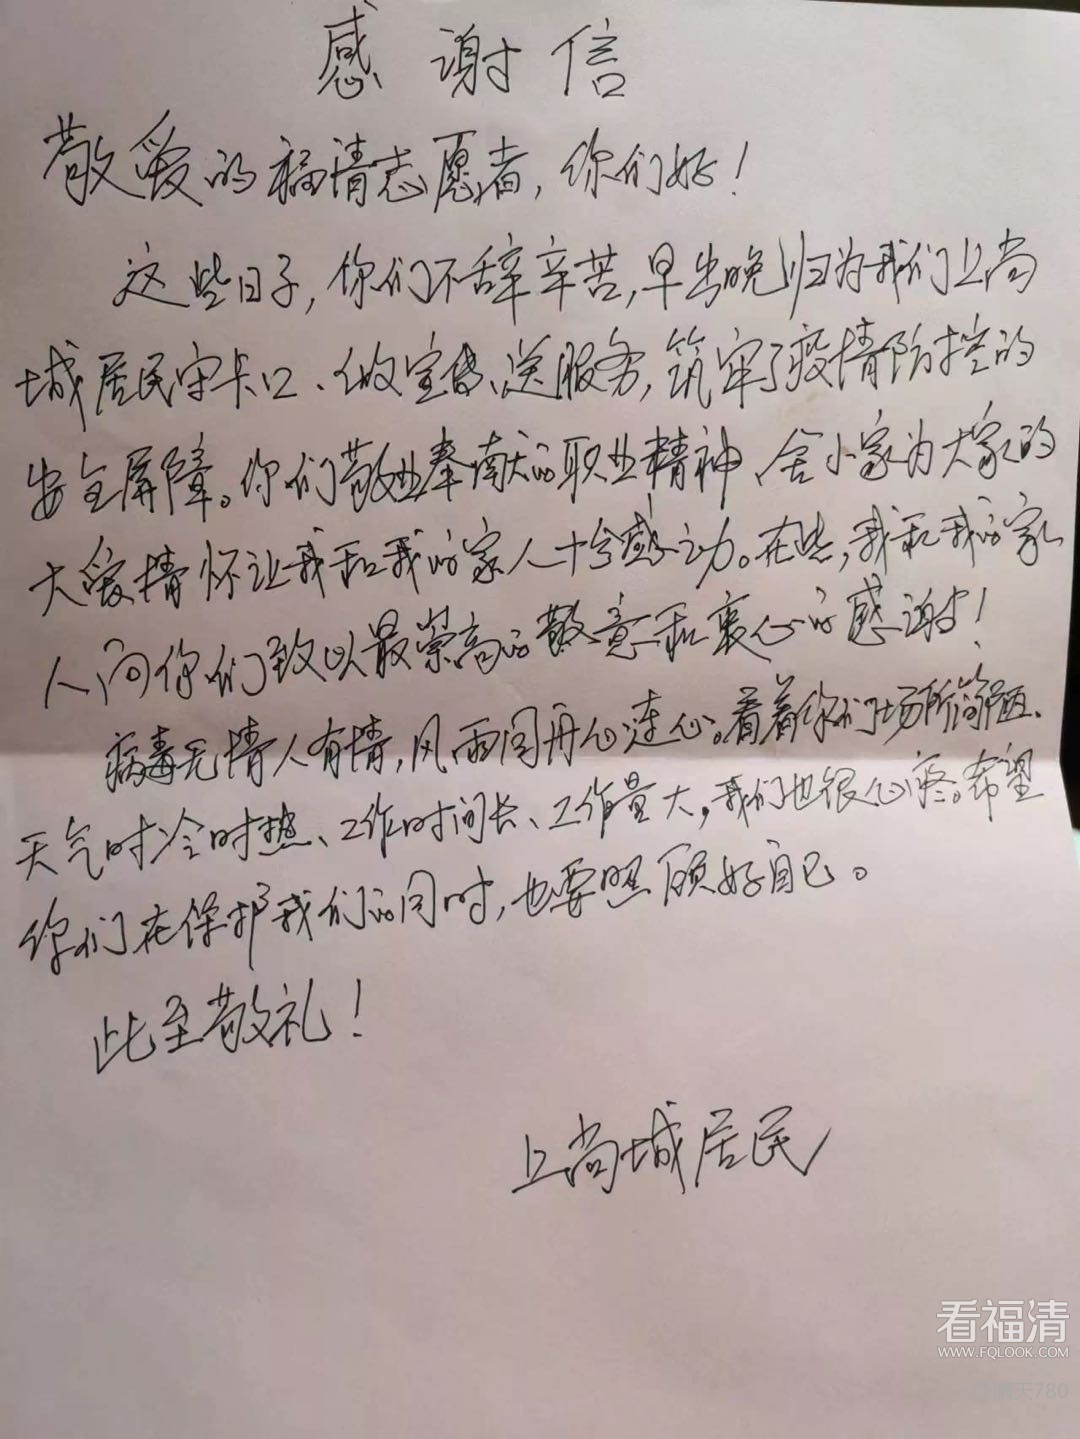 感谢信
敬爱的福清志愿者，你们好！
这些日子，你们不辞辛苦，早出晚归为我们上尚
城居民守卡口、做宣传、送服务，筑牢了疫情防控的
安全屏障。你们敬业奉献的职业精神、舍小家为大家的
大爱情怀让我和我的家人十分感动。在此，我和我的家
人向你们致以最崇高的敬意和衷心的感谢！
病毒无情人有情，风雨同舟心连心。看着你们场所简陋、
天气时冷时热、工作时间长、工作量大，我们也很心疼。希望
你们在保护我们的同时，也要照顾好自己。
此至敬礼！
上尚城居民
看福清
WWW.FQLOOK.COM